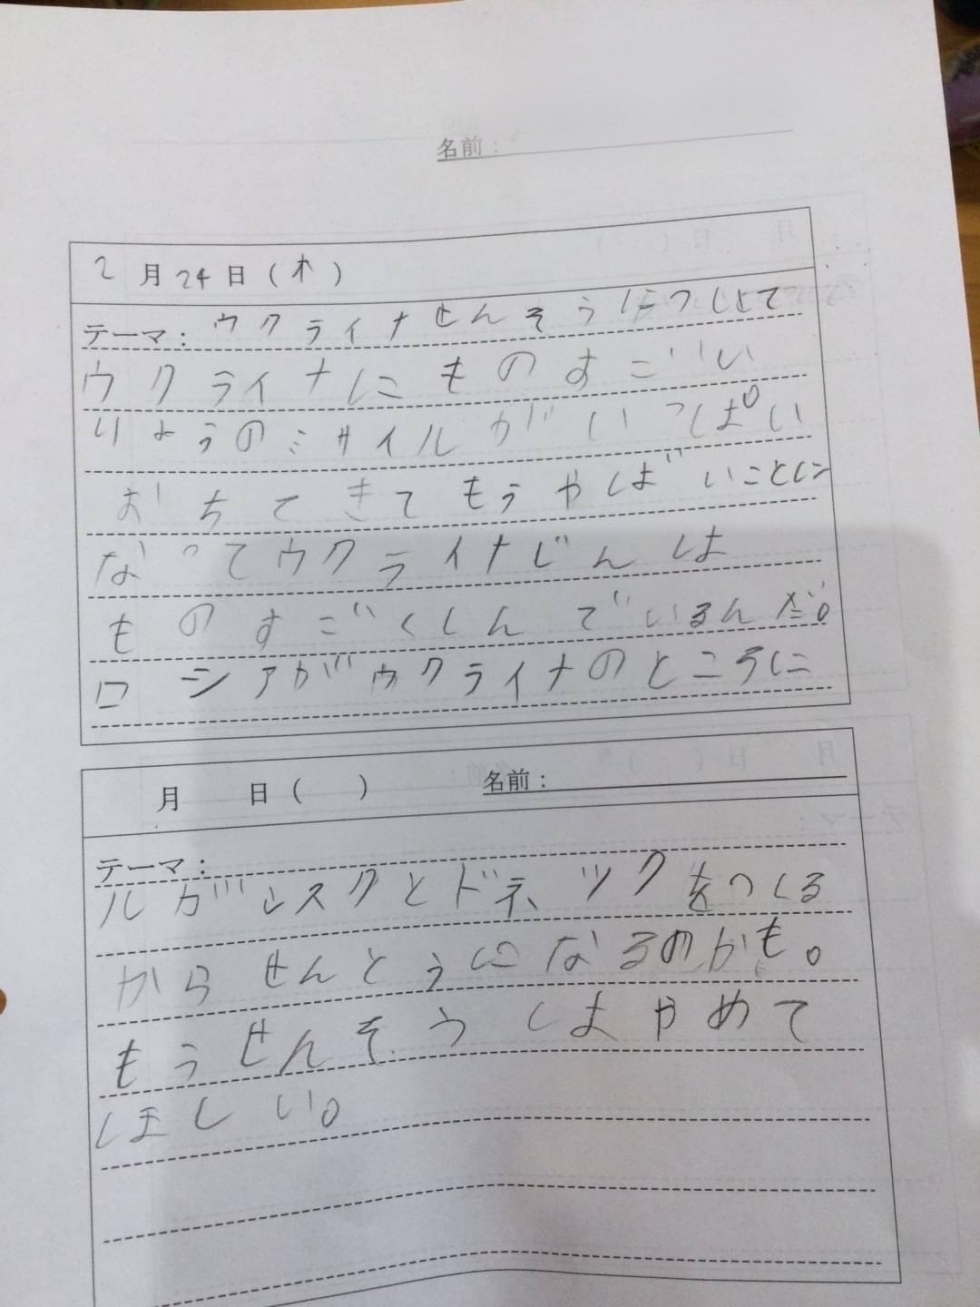 名前：
2月24日(木)
テーマ：ウクライナせんそうにつして
ウクライナにものすごいい
りょうのミサイルがいっぱい
おちてきてもうやばいことに
なってウクライナじんは
ものすごくしんでいるんだ。
ロシアがウクライナのところに
月 日( ) 名前：
テーマ：
ルガンスクとドネツクをつくる
からせんとうになるのかも。
もうせんそうはやめて
ほしい。